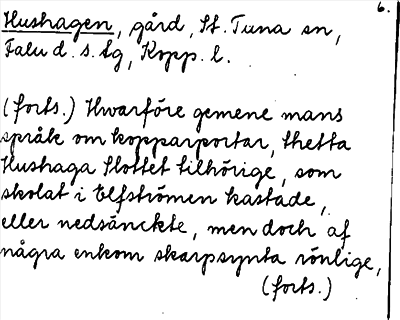 6.
Hushagen, gård, St. Tuna sn,
Falu d. s. lg, Kopp. l.
(forts.) Hwarföre gemene mans
språk om kopparportar, thetta
Hushaga Slottet tilhörige, som
skolat i Elfströmen kastade,
eller nedsänckte, men doch af
några enkom skarpsynta rönlige,
(forts.)